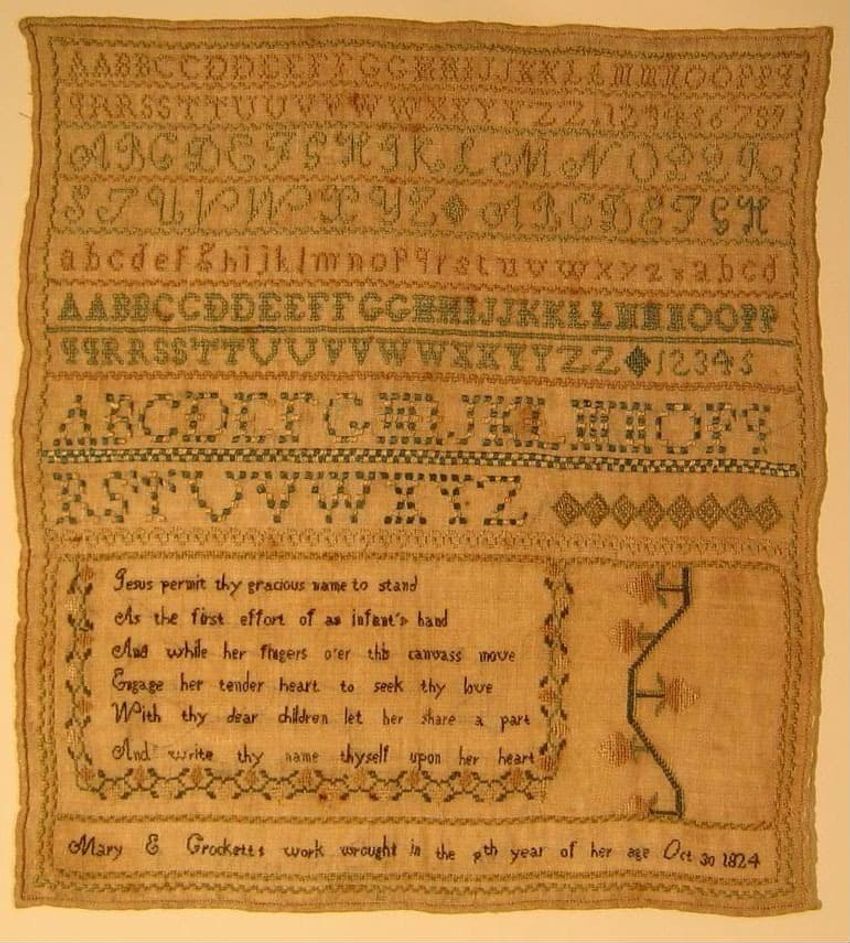 AABBCCDDEEFFGGHHIJJKKLLMMNNOOPPq
qRRSSTTUUVVWWXXYYZZ.123456789
ABCDEFGHIKLMNOPQR
STUVWXYZ ABCDEFGH
abcdefghijklmnopqrstuvwxyzxabcd
AABBCCDDEEFFGGHHIJJKKLLMMNNOOPP
qqRRSSTTUUVVWWXXYYZZ 12345
ABCDEFGHIJKLMNOPq
RSTUVWXYZ
Jesus permit thy gracious name to stand
As the first effort of an infant's hand
And while her fingers o'er this canvass move
Engage her tender heart to seek thy love
With thy dear children let her share a part
And write thy name thyself upon her heart
Mary E Crocketts work wrought in the year of her age Oct 30 1824